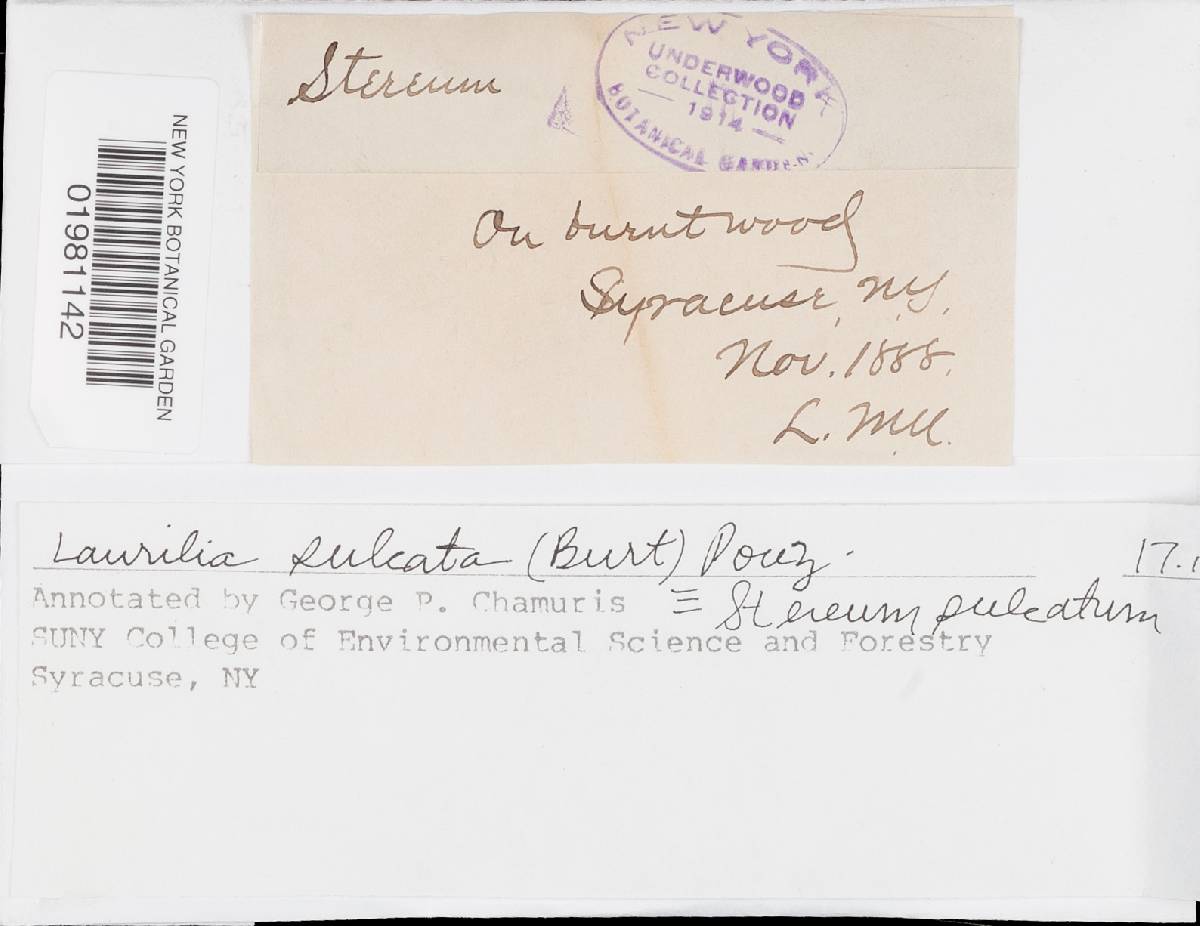 Stereum
NEW YORK
UNDERWOOD
COLLECTION
— 1914 —
BOTANICAL GARDEN.
On burnt wood
Syracuse, N.Y.
Nov. 1888.
NEW YORK BOTANICAL GARDEN
01981142
Laurilia sulcata (Burt) Pouz.
17.1
Annotated by George P. Chamuris ≡ Stereum sulcatum
SUNY College of Environmental Science and Forestry
Syracuse, NY